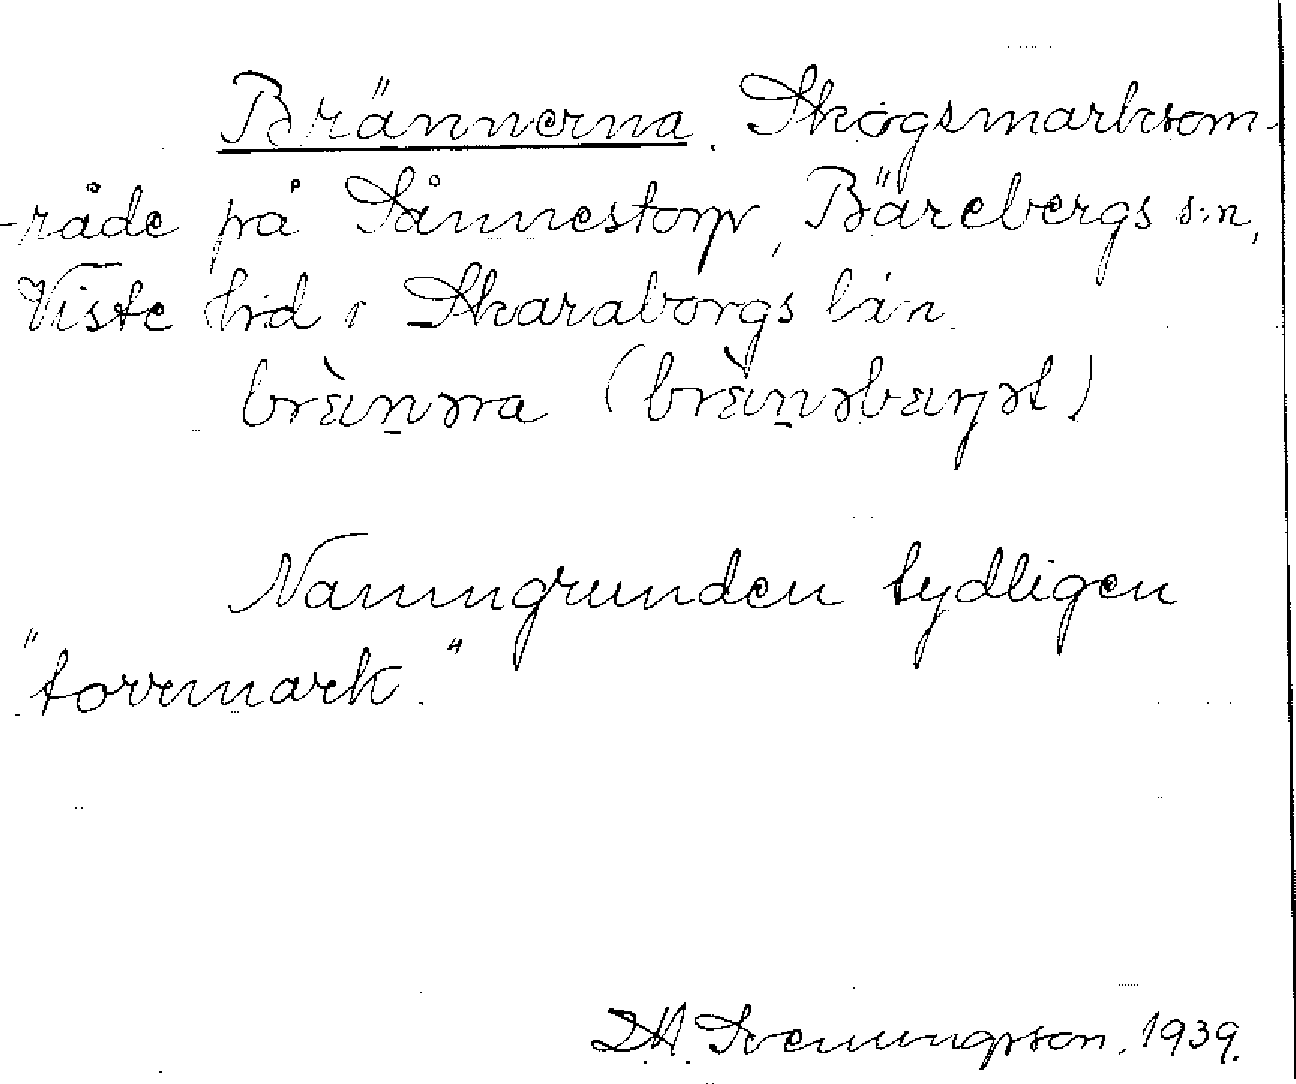 Brännerna. Skogsmarksom-
-råde på Sånnestorp, Bärebergs s:n,
Viste hd i Skaraborgs län.
Namngrunden tydligen
"torrmark."
Svenungsson. 1939.